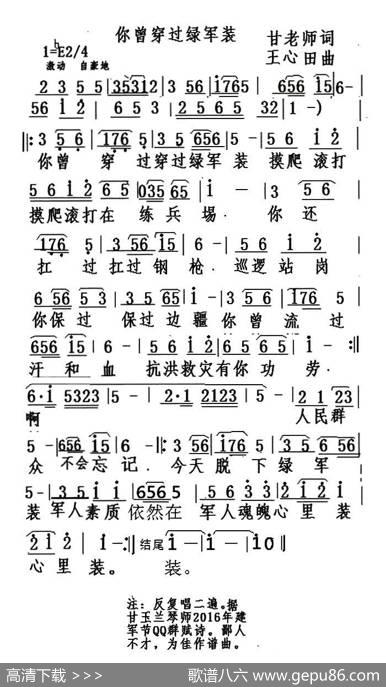 你曾穿过绿军装
甘老师词
1=♭E2/4
王心田曲
激动 自豪地
2 3 5 5 | 35312 | 3 56 | i765 | 656 i5 | 6- |
56 i2 | 6 5 3 | 2 65 65 32 | 1 -) |
‖: 3 5 6 | 176 5 | 3 5 656 | 5 - | 35 6i |
你曾 穿 过穿过绿军 装 摸爬 滚打
5 6 i 2 | 6 5 | 035 65 | i - | 3 5 |
摸爬滚打在 练兵場. 你还
176 5 | 3 56 i5 | 6 - | 5 6 i 2 |
扛 过扛过钢 枪. 巡逻站岗
6 56 5 3 | 3 3 5 65 | i - | 5 6 | i76 5 |
你保过 保过边疆你曾 流 过
656 i5 | 6 - | 5 i 2 i 2 | 65 65 | i - :‖
汗和血 抗洪救灾有你 功 劳.
6·i 5323 | 5 - | 2·1 2123 | 5 - | 2 1 23 |
啊 人民群
5 - | 656 i5 | 6 - | 3 56 | i76 5 | 3 5 6 56 |
众 不会忘记. 今天 脱 下 绿 军
5 - | 3 5 i i | 656 5 | 5 6 3 3 | 2 i 2 3 |
装 军人素质 依然在 军人魂魄心 里 装
2 i 2 | i - :‖ 结尾 i - | i - | i0 ‖
心里 装。 装。
注: 反复唱二遍。据
甘玉兰琴师2016年建
军节QQ群赋诗。鄙人
不才，为佳作谱曲。
高清下载 > > >
歌谱八六 www.gepu86.com